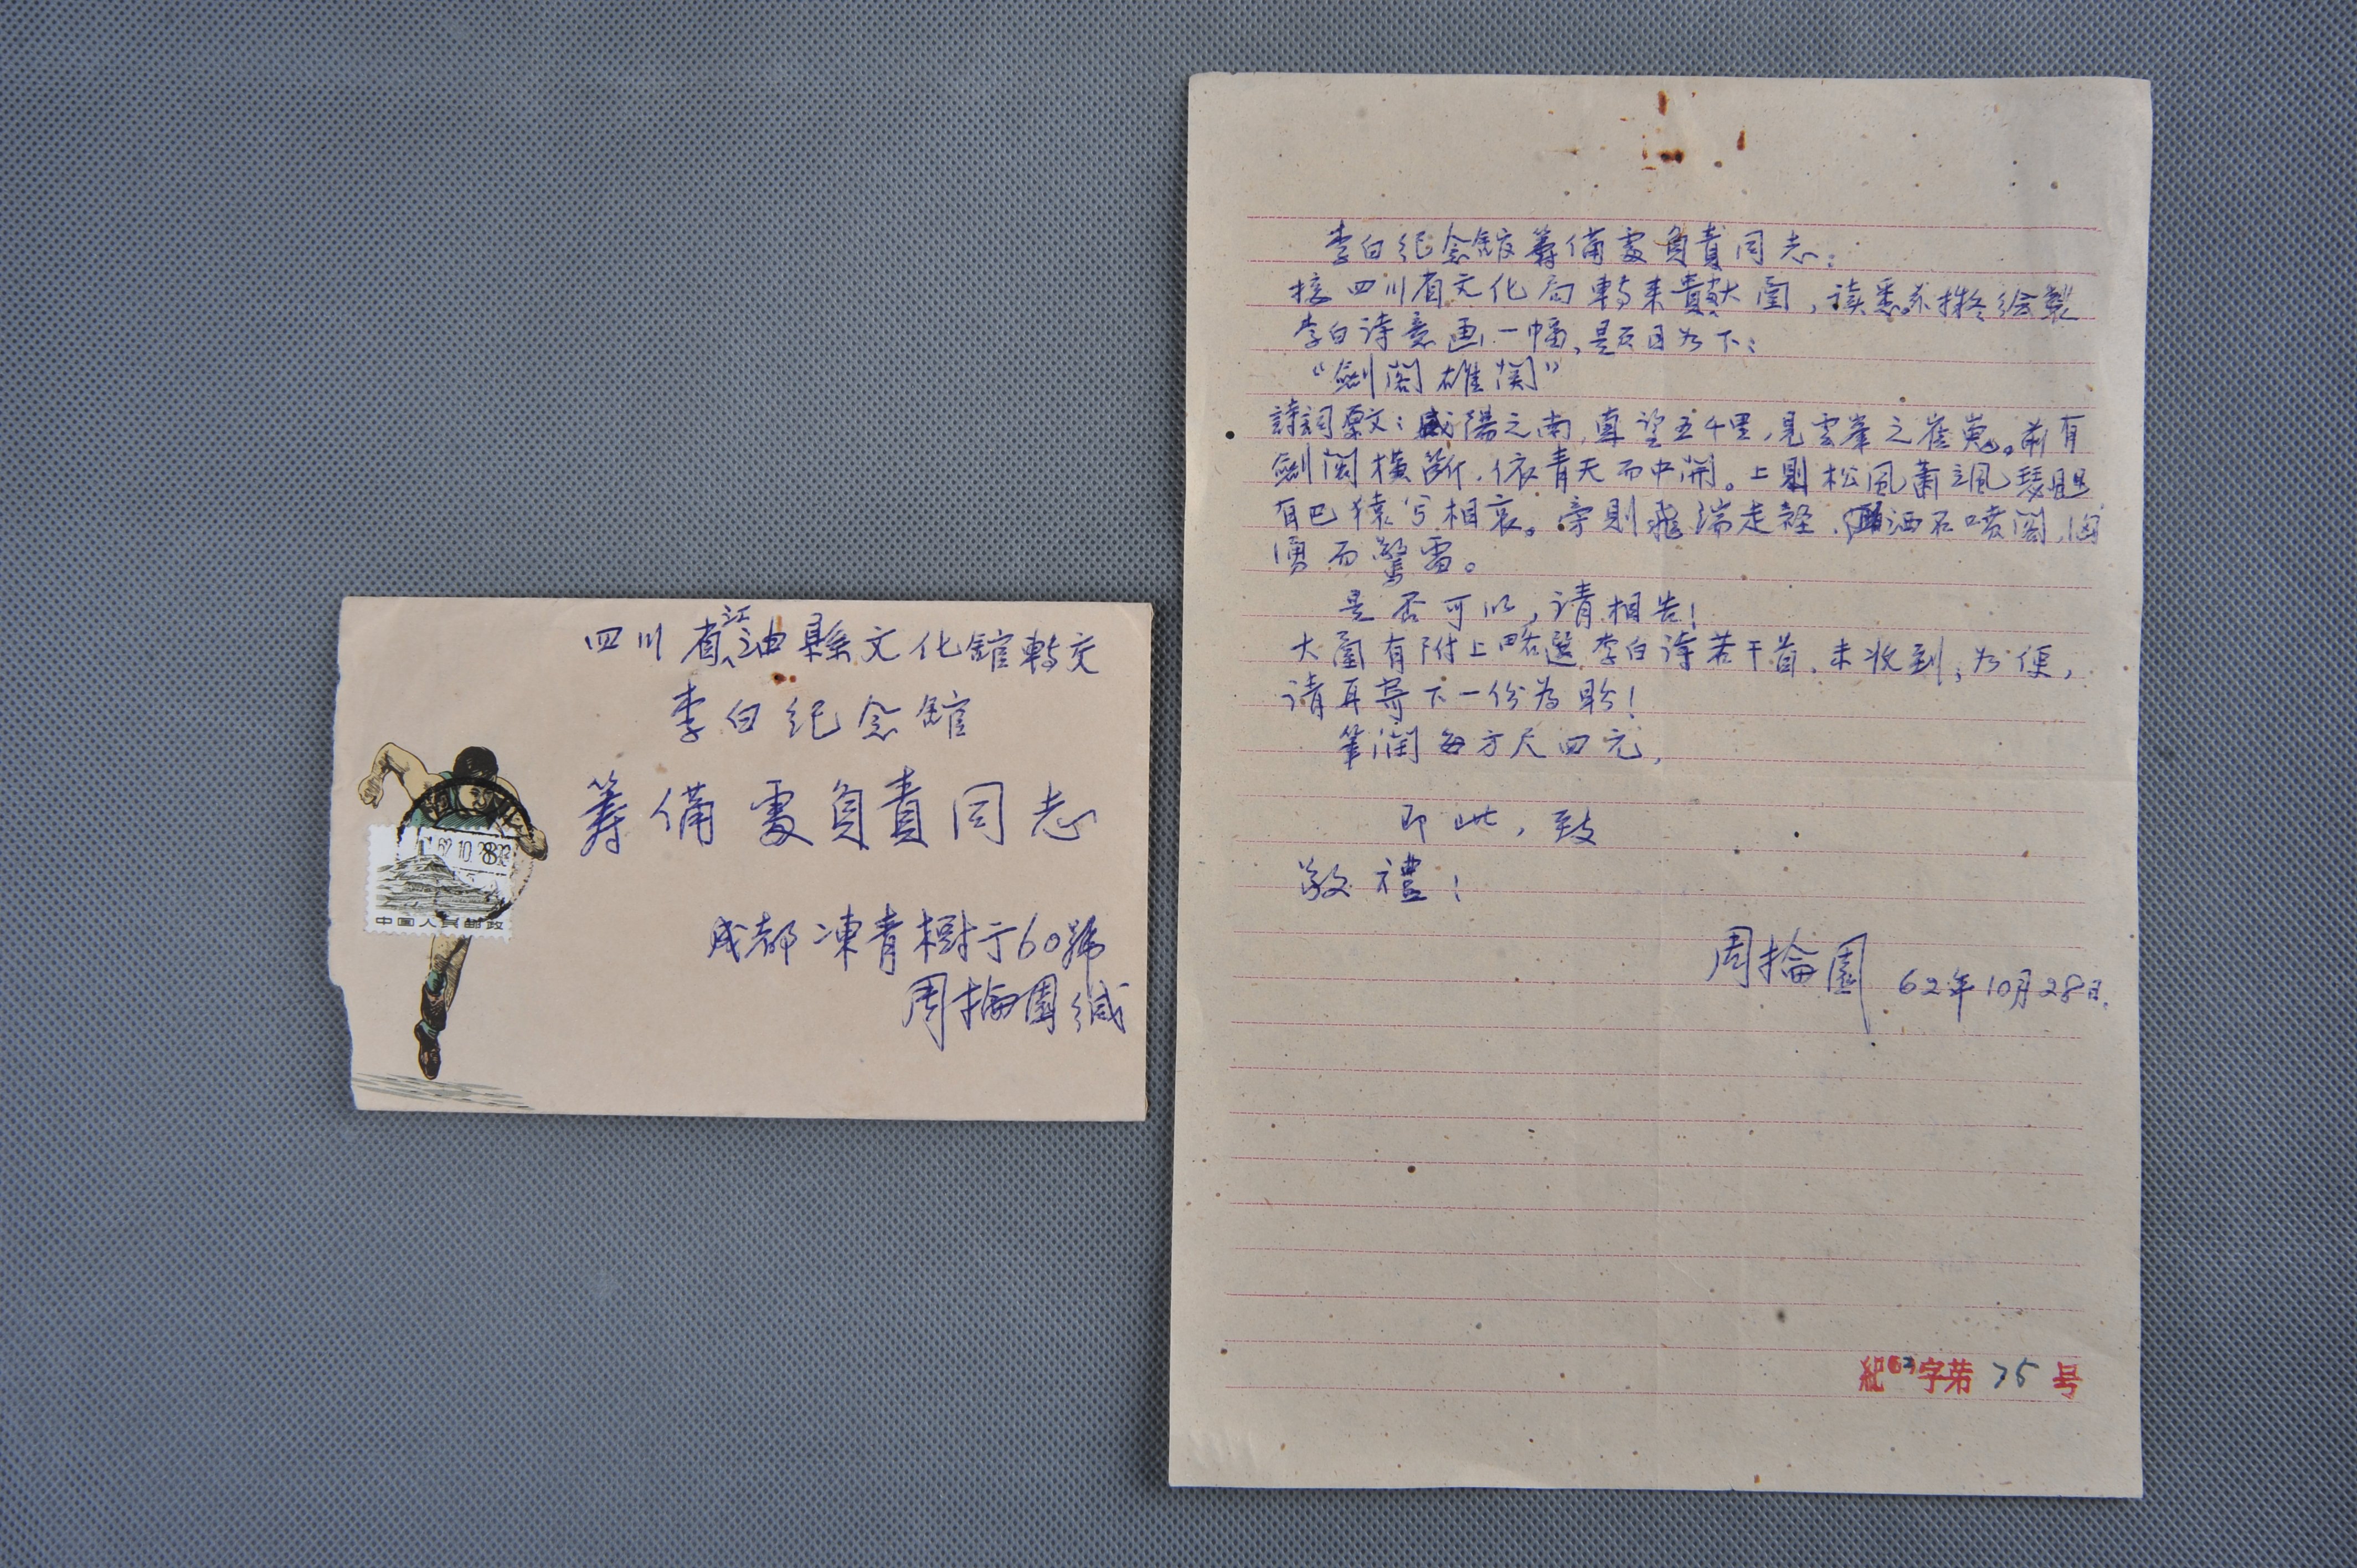 四川省江油縣文化館轉交
李白纪念館
筹備處負責同志
成都凍青樹于60號
周掄園缄
62.10.28
中国人民邮政
李白纪念館筹備處負責同志:
接四川省文化局轉来貴献函,读悉。亦拟绘製
李白诗意画一幅,題目为下:
“劍阁雄関”
詩詞原文:咸陽之南,直望五千里,見雲峯之崔嵬。前有
劍阁橫斷,依青天而中開。上則松風蕭颯瑟颶
有巴猿兮相哀。旁則飛湍走壑,洒石喷阁,洶
湧而驚雷。
是否可以,请相告!
大函有附上略選李白诗若干首,未收到,为便,
请再寄下一份为盼!
筆润每方尺四元,
即此,致
敬禮!
周掄園 62年10月28日.
紀62字第75号